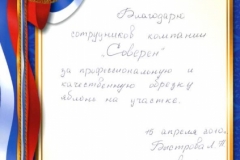 Благодарю
сотрудников компании
"Соверен"
за профессиональную и
качественную обрезку
яблонь на участке.
апреля 2010г.